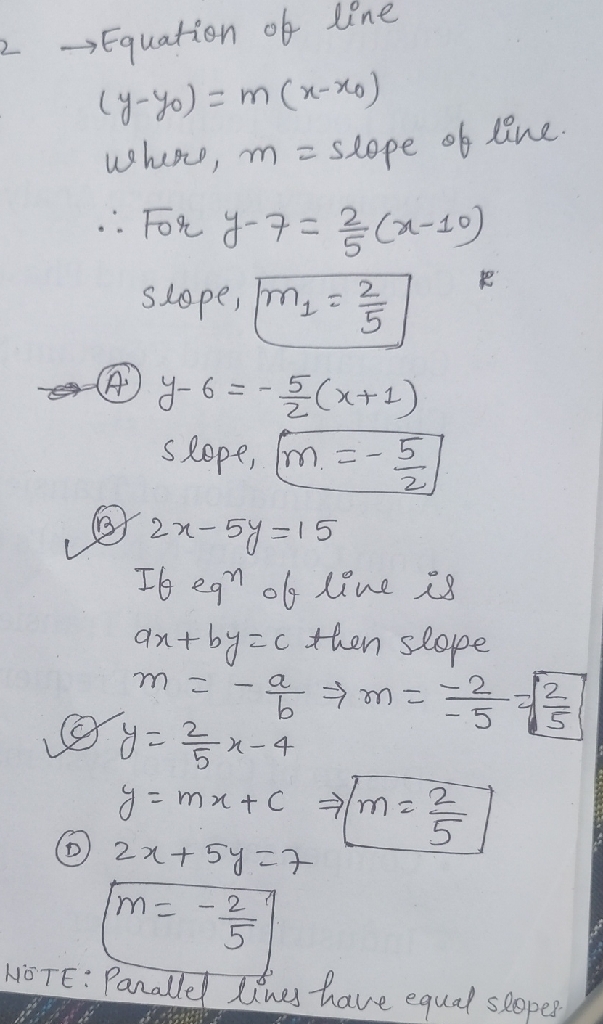 2 → Equation of line
(y-y₀) = m(x-x₀)
where, m = slope of line.
∴ For y-7 = 2/5 (x-10)
slope, m₁ = 2/5
(A) y-6 = -5/2 (x+1)
slope, m = -5/2
(B) 2x-5y=15
If eqⁿ of line is
ax+by=c then slope
m = -a/b ⇒ m = -2/-5 = 2/5
(C) y = 2/5 x-4
y = mx+c ⇒ m = 2/5
(D) 2x+5y=7
m = -2/5
NOTE: Parallel lines have equal slopes